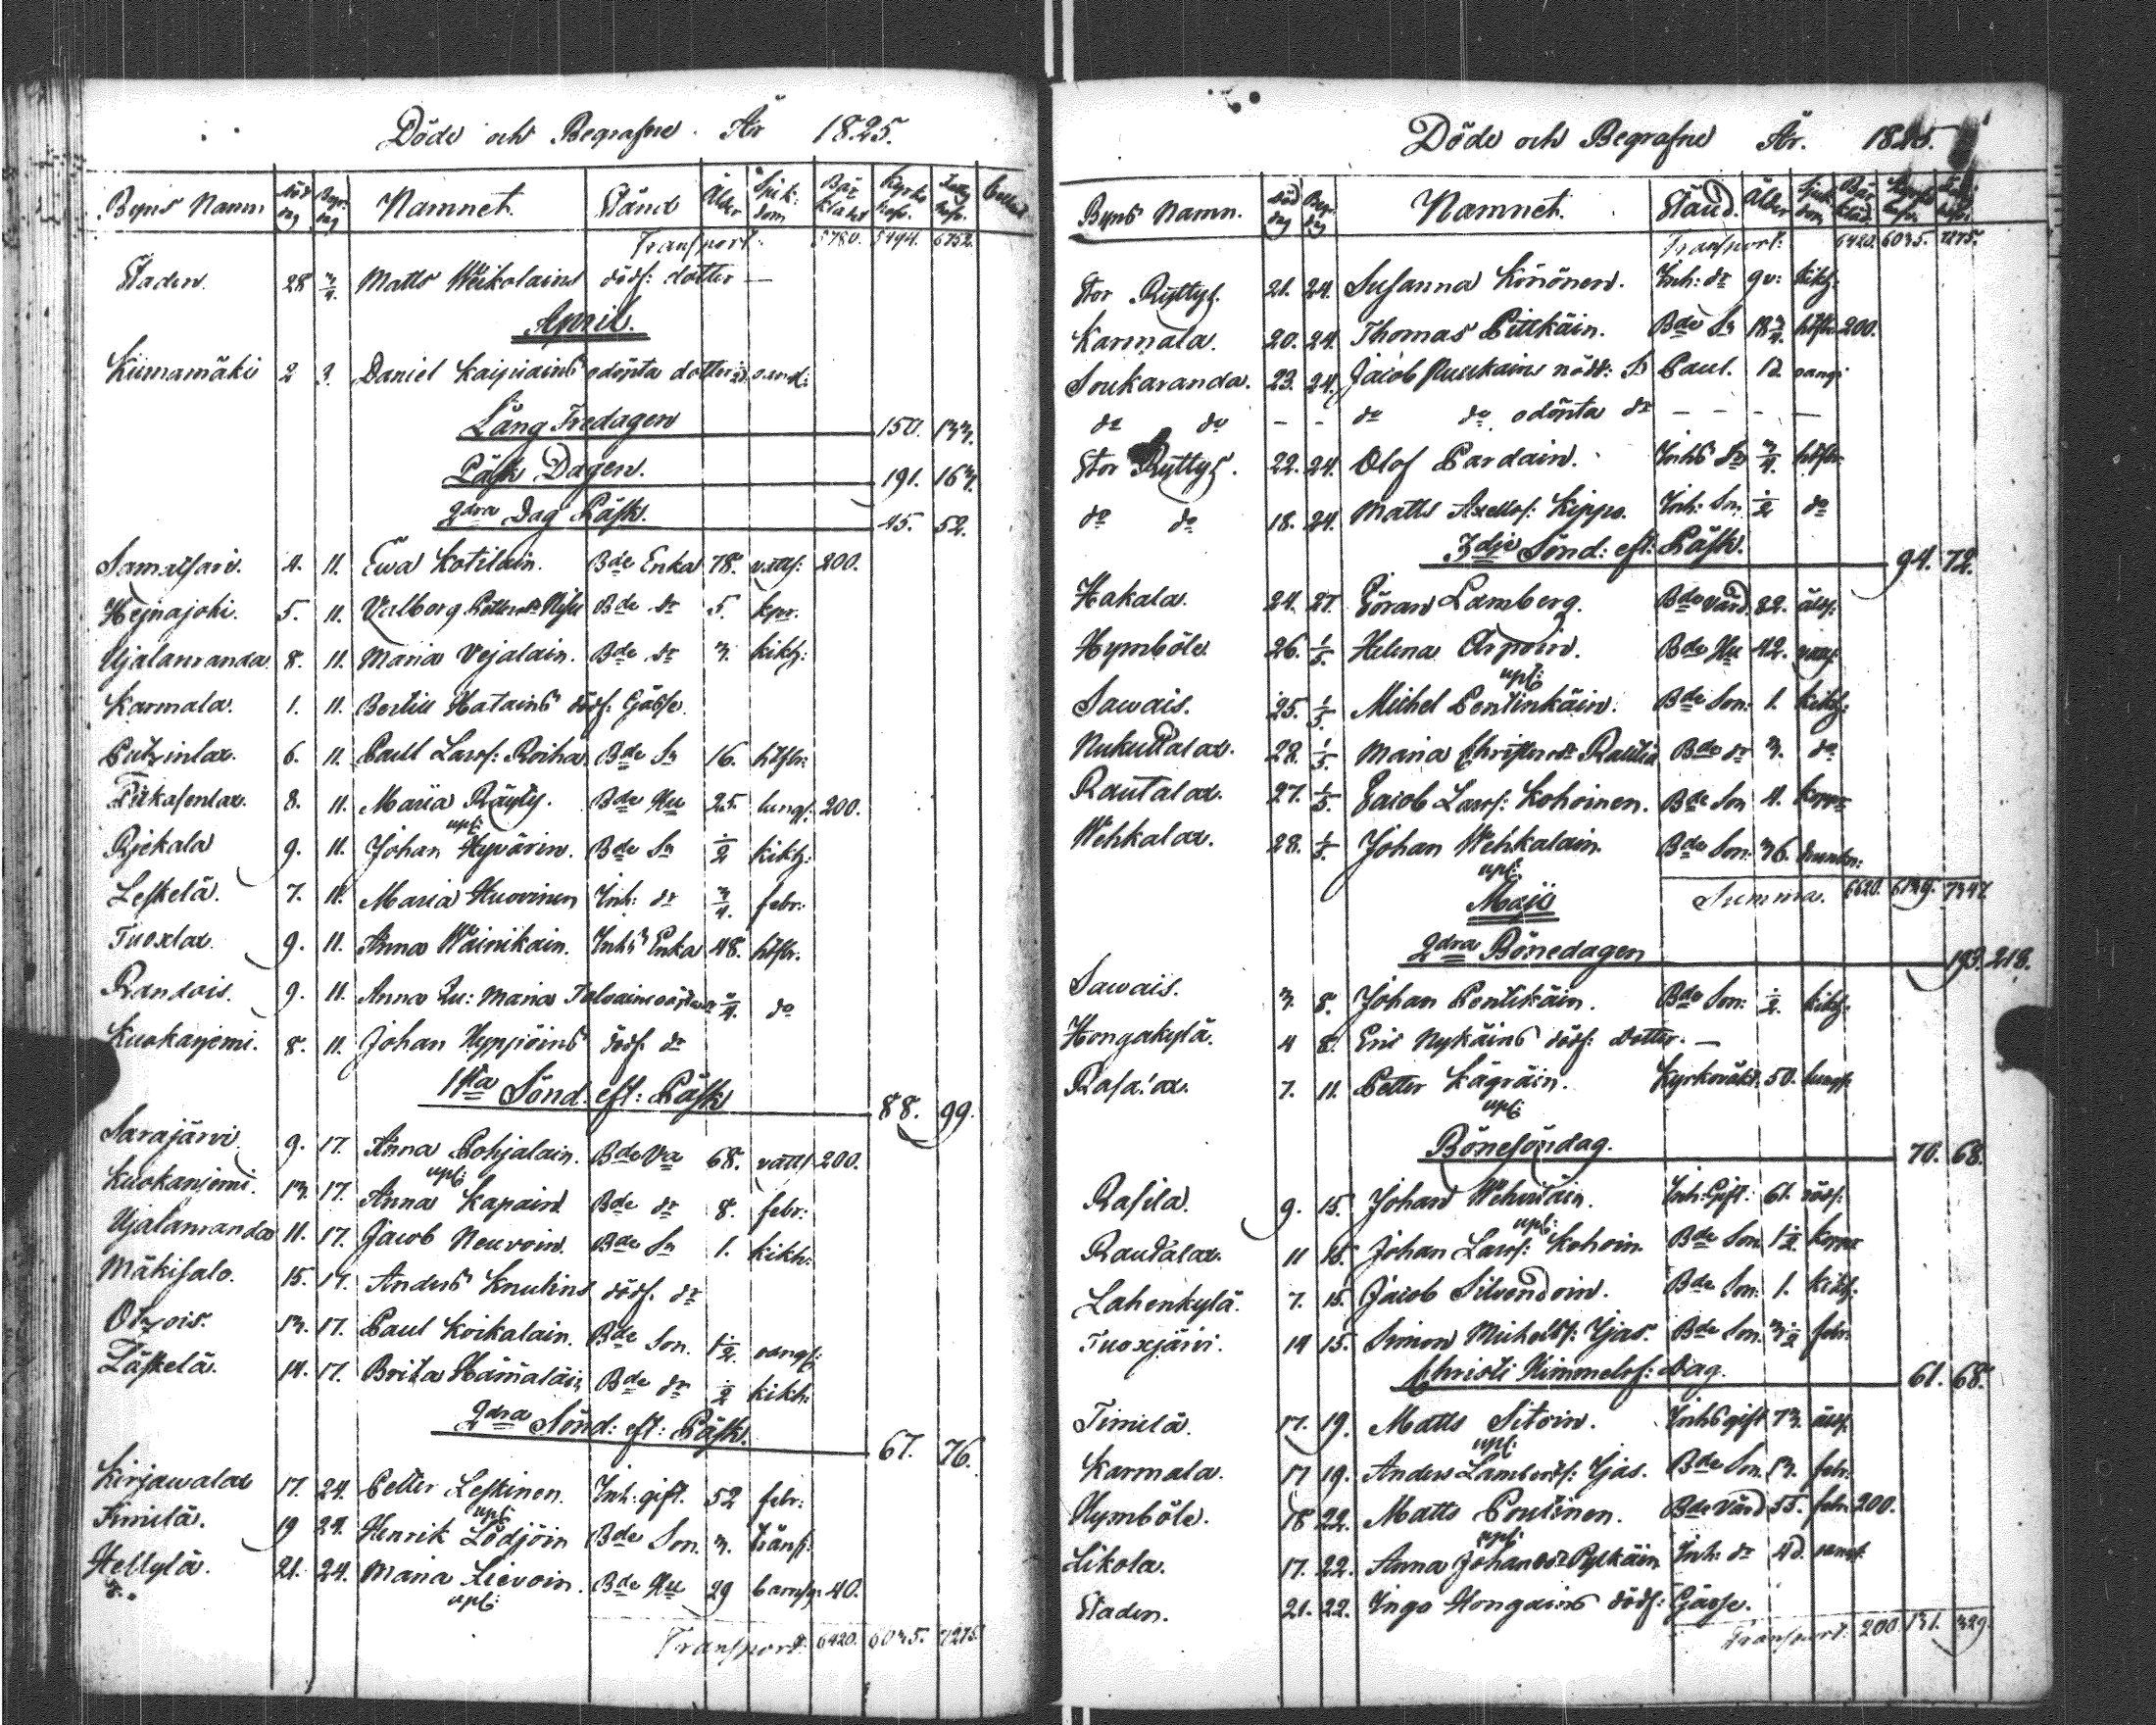 Döde och Begrafne År 1825.
Byns Namn Död dag Begr: dag Namnet. Stånd Ålder Sjuk: dom Bår kläde Kyrko
Transport: 5780. 5494. 6752.
Staden. 28 3/4. Matts Weikolains dödf: dotter —
April.
Kiimamäki 2 3. Daniel Kaipiains odöpta dotter
Lång Fredagen 150. 133.
Påsk Dagen. 191. 163.
2dra Dag Påsk. 45. 52.
4. 11. Ewa Kotilain. Bde Enka 78. vatts: 200.
Hejnajoki. 5. 11. Valborg Bde dr 5.
Ujalanranda 8. 11. Maria Vejalain. Bde dr 3. kikh:
Karmala. 1. 11. Bertill Hatains dödf: Gåsse.
Putzinlax. 6. 11. Paull Larsf: Roiha Bde Sn 16. hitsfbr:
8. 11. Maria Räyty. Bde Hu 25. lungf: 200.
upf:
Rjekala 9. 11. Johan Hyvärin. Bde Sn 1/2 kikh:
Leskelä. 7. 11. Maria Huovinen Inh: dr 3/4. febr:
Tuoxlax. 9. 11. Anna Wäinikain. Inhs Enka 48. hitsfbr.
Randois. 9. 11. Anna Lu: Maria do
Kuokanjemi. 8. 11. Johan Hyppöins dödf. dr
1sta Sönd. eft: Påsk 88. 99.
Sarajärvi 9. 17. Anna Pohjalain. Bde Va 68. vatts 200.
upf:
Kuokanjemi. 13. 17. Anna Kapain Bde dr 8. febr:
Ujalanranda 11. 17. Jacob Neuvoin. Bde Sn 1. kikh:
Mäkisalo. 15. 17. Anders Knutins dödf. dr
Otzois. 13. 17. Paul Koikalain. Bde Son. 1 1/2.
Läskelä. 14. 17. Brita Hämäläin Bde dr 1/2 kikh:
2dra Sönd: eft: Påsk. 67. 76.
Kirjawalax 17. 24. Petter Leskinen. Inh: gift. 52 febr:
upf:
Kimilä. 19 24. Henrik Lödjöin Bde Son. 3. bränf:
Hellylä. 21. 24. Maria Lievoin. Bde Hu 29 barnfg: 40.
upf:
Transport: 6420. 6035. 7275.
Döde och Begrafne År. 1825.
Byns Namn. Död dag Beg: dag Namnet. Stånd. Ålder Sjuk dom Bår kläd.
Transport: 6420. 6035. 7275.
Stor Ryttys. 21. 24. Susanna Könönen. Inh: dr 9v: kikh:
Karmala. 20. 24. Thomas Pittkäin. Bde Sn 18 3/4 hitsfbr 200.
Soukaranda. 23. 24. Jacob nödd: S. Paul. 1d.
do do — — do do odöpta dr — — — —
Stor Ryttys. 22. 24. Olof Pardain. Inhs dr 3/4. hitsfbr:
do do 18. 24. Matts Axellsf: Kippo. Inh: Sn. 1/2 do
3dje Sönd: eft: Påsk. 94. 72.
Hakala. 24. 27. Göran Lamberg. Bde värd 82. ålds:
Hymböle. 26. 1/5. Helena Arpoin. Bde Hu 42.
upf:
Sawais. 25. 1/5. Michel Pentinkäin. Bde Son: 1. kikh:
Nukuttalax. 28. 1/5. Maria Christersdr Rautia Bde dr 3. do
Rautalax. 27. 1/5. Jacob Larsf: Kohoinen. Bde Son 4. kopp:
Wehkalax. 28. 1/5. Johan Wehkalain Bde Son: 36. drunkn:
upf:
Summa. 6620. 6129. 7347
Maji
2dra Bönedagen 193. 218.
Sawais. 3. 8. Johan Pentikäin. Bde Son: 1/2 kikh:
Hongakylä. 4 8. Eric Nykäins dödf: dotter. —
7. 11. Petter Kägräin. Kyrkoväkt. 50. lungf:
upf:
Bönesöndag. 70. 68.
Rasila. 9. 15. Johan Inh: Gift. 61. rödf:
upf:
Rautalax. 11 15. Johan Larsf: Kohoin. Bde Son 1 1/2 kopp:
Lahenkylä. 7. 15. Jacob Silvendoin. Bde Son: 1. kikh:
Tuoxjärvi. 14 15. Simon Michelsf: Ijas. Bde Son. 3 1/2 febr:
Christi Himmelsf: dag. 61. 68.
Timilä. 17. 19. Matts Sitoin. Inhs gift 73. ålds:
upf:
Karmala. 17 19. Anders Lambertsf: Ijas. Bde Son. 13. febr:
Hymböle. 18 22. Matts Poutinen. Bde värd 55. febr 200.
upf:
Likola. 17. 22. Anna Johansdr Pylkäin Inh: dr 4d.
Staden. 21. 22. Inga Hongains dödf: Gåsse.
Transport: 200 131. 329.